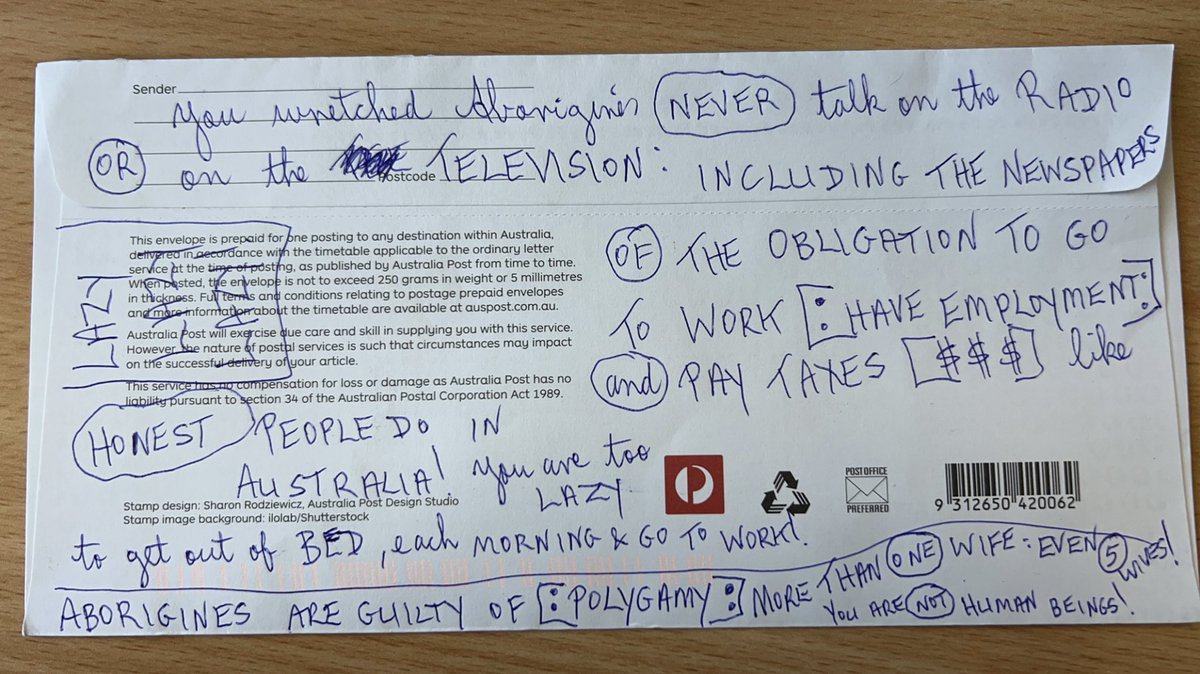 Sender
You wretched Aborigines NEVER talk on the RADIO
OR on the TELEVISION: INCLUDING THE NEWSPAPERS
Postcode
This envelope is prepaid for one posting to any destination within Australia,
delivered in accordance with the timetable applicable to the ordinary letter
service at the time of posting, as published by Australia Post from time to time.
When posted, the envelope is not to exceed 250 grams in weight or 5 millimetres
in thickness. Full terms and conditions relating to postage prepaid envelopes
and more information about the timetable are available at auspost.com.au.
Australia Post will exercise due care and skill in supplying you with this service.
However, the nature of postal services is such that circumstances may impact
on the successful delivery of your article.
This service has no compensation for loss or damage as Australia Post has no
liability pursuant to section 34 of the Australian Postal Corporation Act 1989.
LAZY
OF THE OBLIGATION TO GO
TO WORK [: HAVE EMPLOYMENT:]
and PAY TAXES [$$$] like
HONEST PEOPLE DO IN
AUSTRALIA! You are too
LAZY
Stamp design: Sharon Rodziewicz, Australia Post Design Studio
Stamp image background: ilolab/Shutterstock
POST OFFICE
PREFERRED
9 312650 420062
to get out of BED, each MORNING & GO TO WORK!
ABORIGINES ARE GUILTY OF [:POLYGAMY:] MORE THAN ONE WIFE: EVEN 5 WIVES!
YOU ARE NOT HUMAN BEINGS!